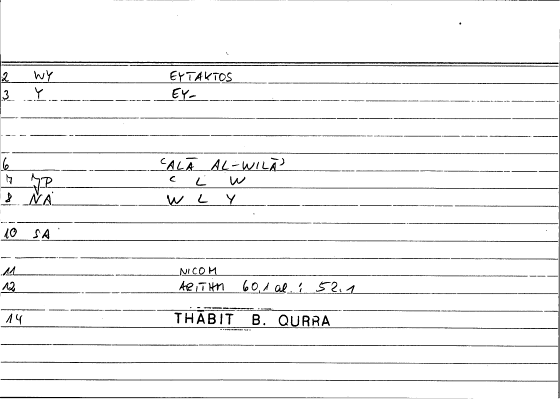 2 WY EYTAKTOS
3 Y EY-
6 ʿALĀ AL-WILĀʾ
7 NP ʿ L W
8 NA W L Y
10 SA
11 NICOM
12 ARITHM 60,1 al.; 52.1
14 THĀBIT B. QURRA